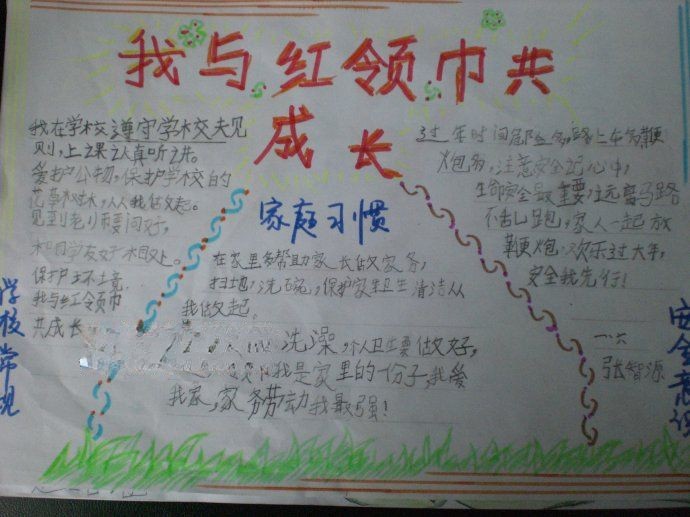 我与红领巾共
成长
我在学校遵守学校夫见
则,上课认真听讲。
爱护公物,保护学校的
花草树木,从我做起。
见到老师要问好,
和同学友好相处。
保护环境
我与红领巾
共成长
学校常规
家庭习惯
在家里多帮助家长做家务,
扫地,洗碗,保护家车卫生清洁从
我做起。
洗澡,个人卫生要做好,
我是家里的一份子我爱
我家,家务劳动我最强!
过年时间
路上车多鞭
炮多,注意安全记心中,
生命安全最重要,
马路
不乱跑,家人一起放
鞭炮,欢乐过大年,
安全我先行!
一.六
张智源
安全意识